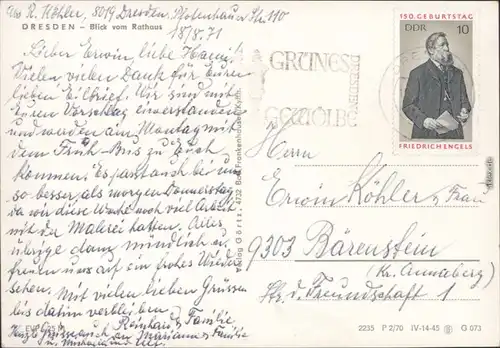 Abs. R. Köhler, 8019 Dresden, Str. 110
DRESDEN – Blick vom Rathaus
18/8.71
Lieber Erwin, liebe Hanni!
Vielen vielen Dank für Euren
lieben Eilbrief. Wir sind mit
Euren Vorschlag einverstanden
und werden am Montag mit
dem Früh-Bus zu Euch
kommen. Es paßt auch bei uns
so besser, als morgen Donnerstag,
da wir diese Woche noch viel Arbeit
mit der Malerei hatten. Alles
übrige dann mündlich
freuen uns auf ein frohes Wieder
sehen. Mit vielen lieben Grüssen
bis dahin verbleiben
Reinhard & Familie
Marianne & Familie
150. GEBURTSTAG
DDR 10
FRIEDRICH ENGELS
GRÜNES
GEWÖLBE
DRESDEN
Verlag Görtz, 4732 Bad Frankenhausen, Kyffh.
Herrn
Erwin Köhler & Frau
9303 Bärenstein
(Kr. Annaberg)
Str. d. Freundschaft 1
2235 P 2/70 IV-14-45 G 073